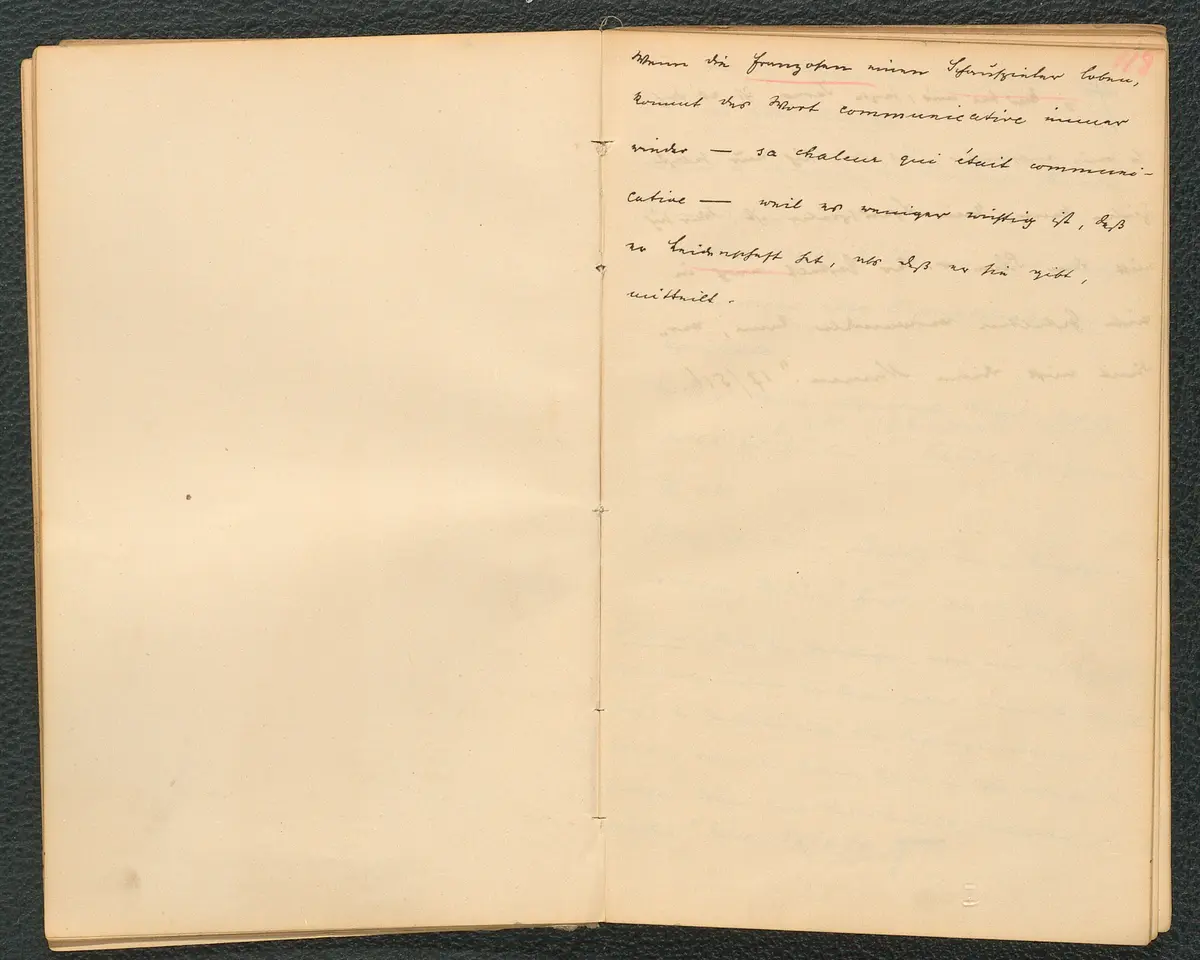 119
Wenn die Franzosen einen Schauspieler loben,
kommt das Wort communicative immer
wieder — sa chaleur qui était communi-
cative — weil es weniger wichtig ist, daß
er Leidenschaft hat, als daß er sie gibt,
mitteilt.